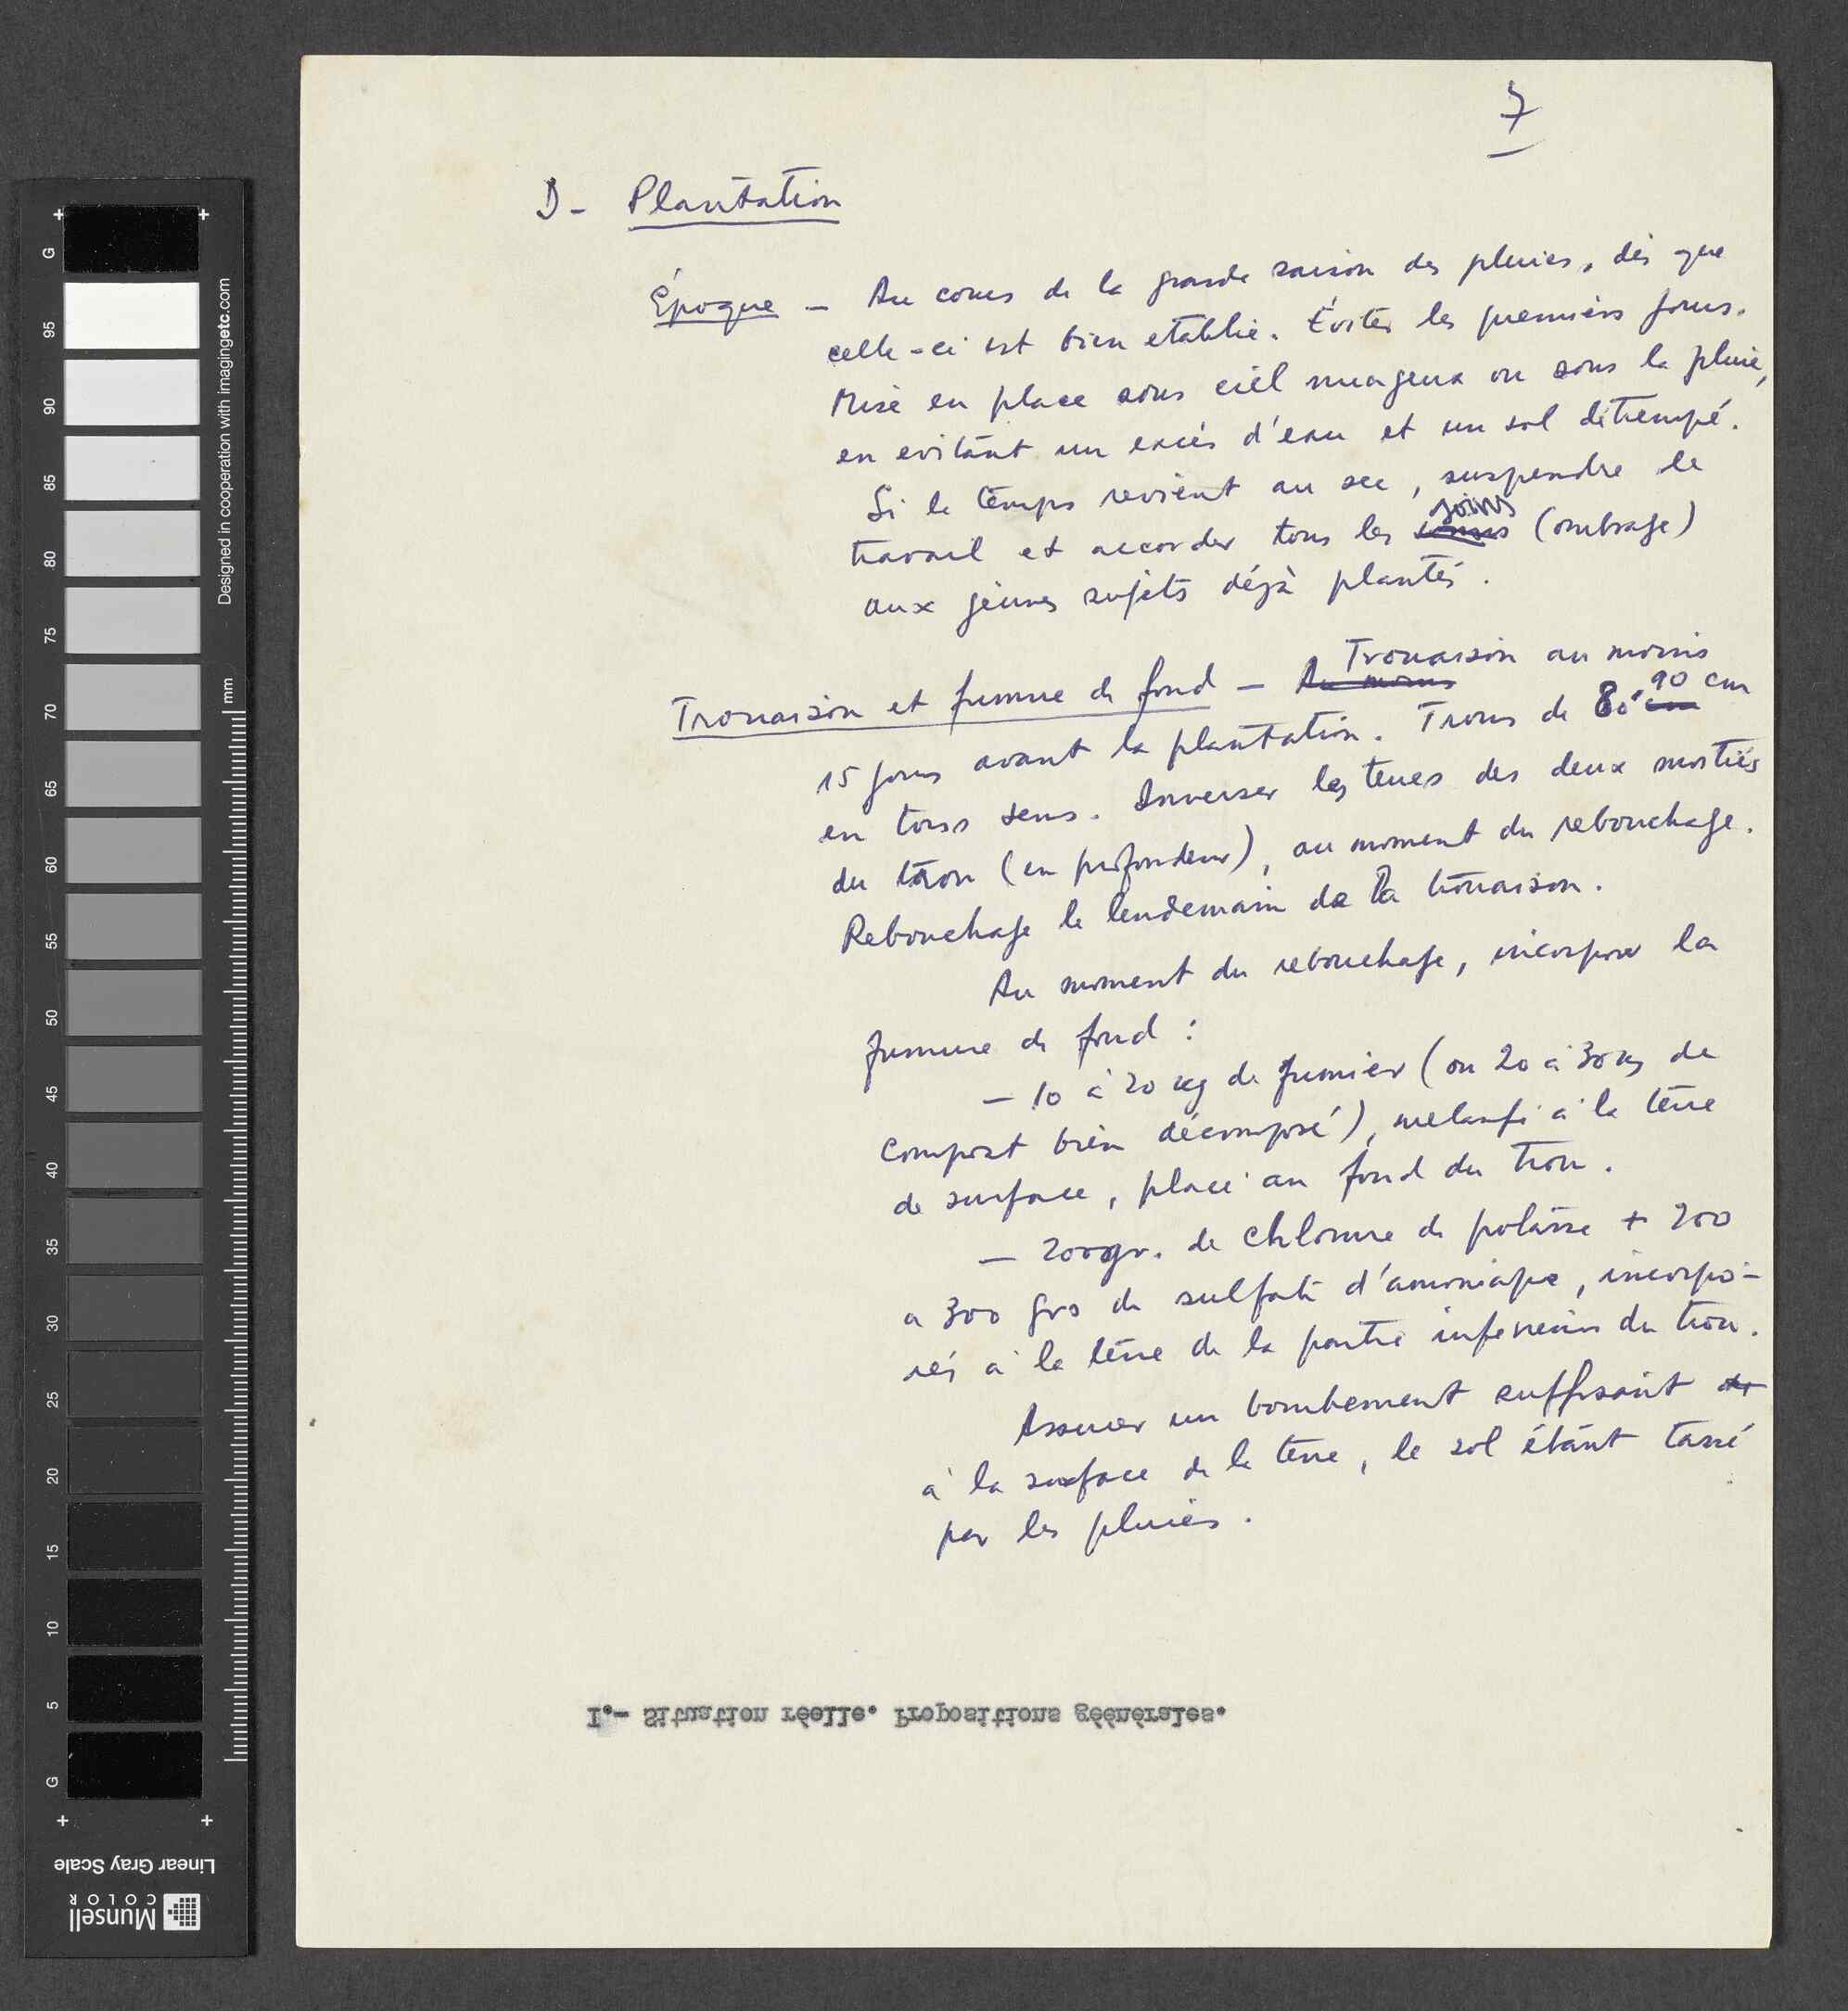 7
D - Plantation
Époque - Au cours de la grande saison des pluies, dès que
celle-ci est bien etablie. Éviter les premiers jours.
Mise en place sous ciel nuageux ou sous la pluie,
en evitant un excès d'eau et un sol détrempé.
Si le temps revient au sec, suspendre le
travail et accorder tous les soins (ombrage)
aux jeunes sujets déjà plantés.
Trouaison et fumure de fond - Au moins Trouaison au moins
15 jours avant la plantation. Trous de 80 à 90 cm
en tous sens. Inverser les terres des deux moitiés
du trou (en profondeur), au moment du rebouchage.
Rebouchage le lendemain de la trouaison.
Au moment du rebouchage, incorporer la
fumure de fond :
- 10 à 20 kg de fumier (ou 20 à 30 kg de
compost bien décomposé), melangé à la terre
de surface, placé au fond du trou.
- 200 gr. de chlorure de potasse + 200
a 300 grs de sulfate d'amoniaque, incorpo-
rés à la terre de la partie inferieure du trou.
Assurer un bombement suffisant
à la surface de la terre, le sol étant tassé
par les pluies.
I.- Situation réelle. Propositions géénérales.
G
95
90
85
80
75
70
65
60
55
50
45
40
35
30
25
20
15
10
5
G
Designed in cooperation with imagingetc.com
mm
Linear Gray Scale
Munsell
COLOR